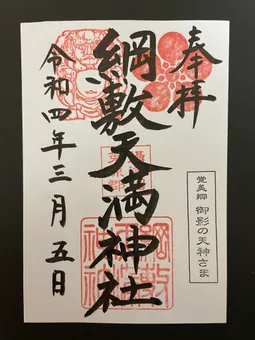 奉拝
綱敷天満神社
令和四年三月五日
御影の天神さま